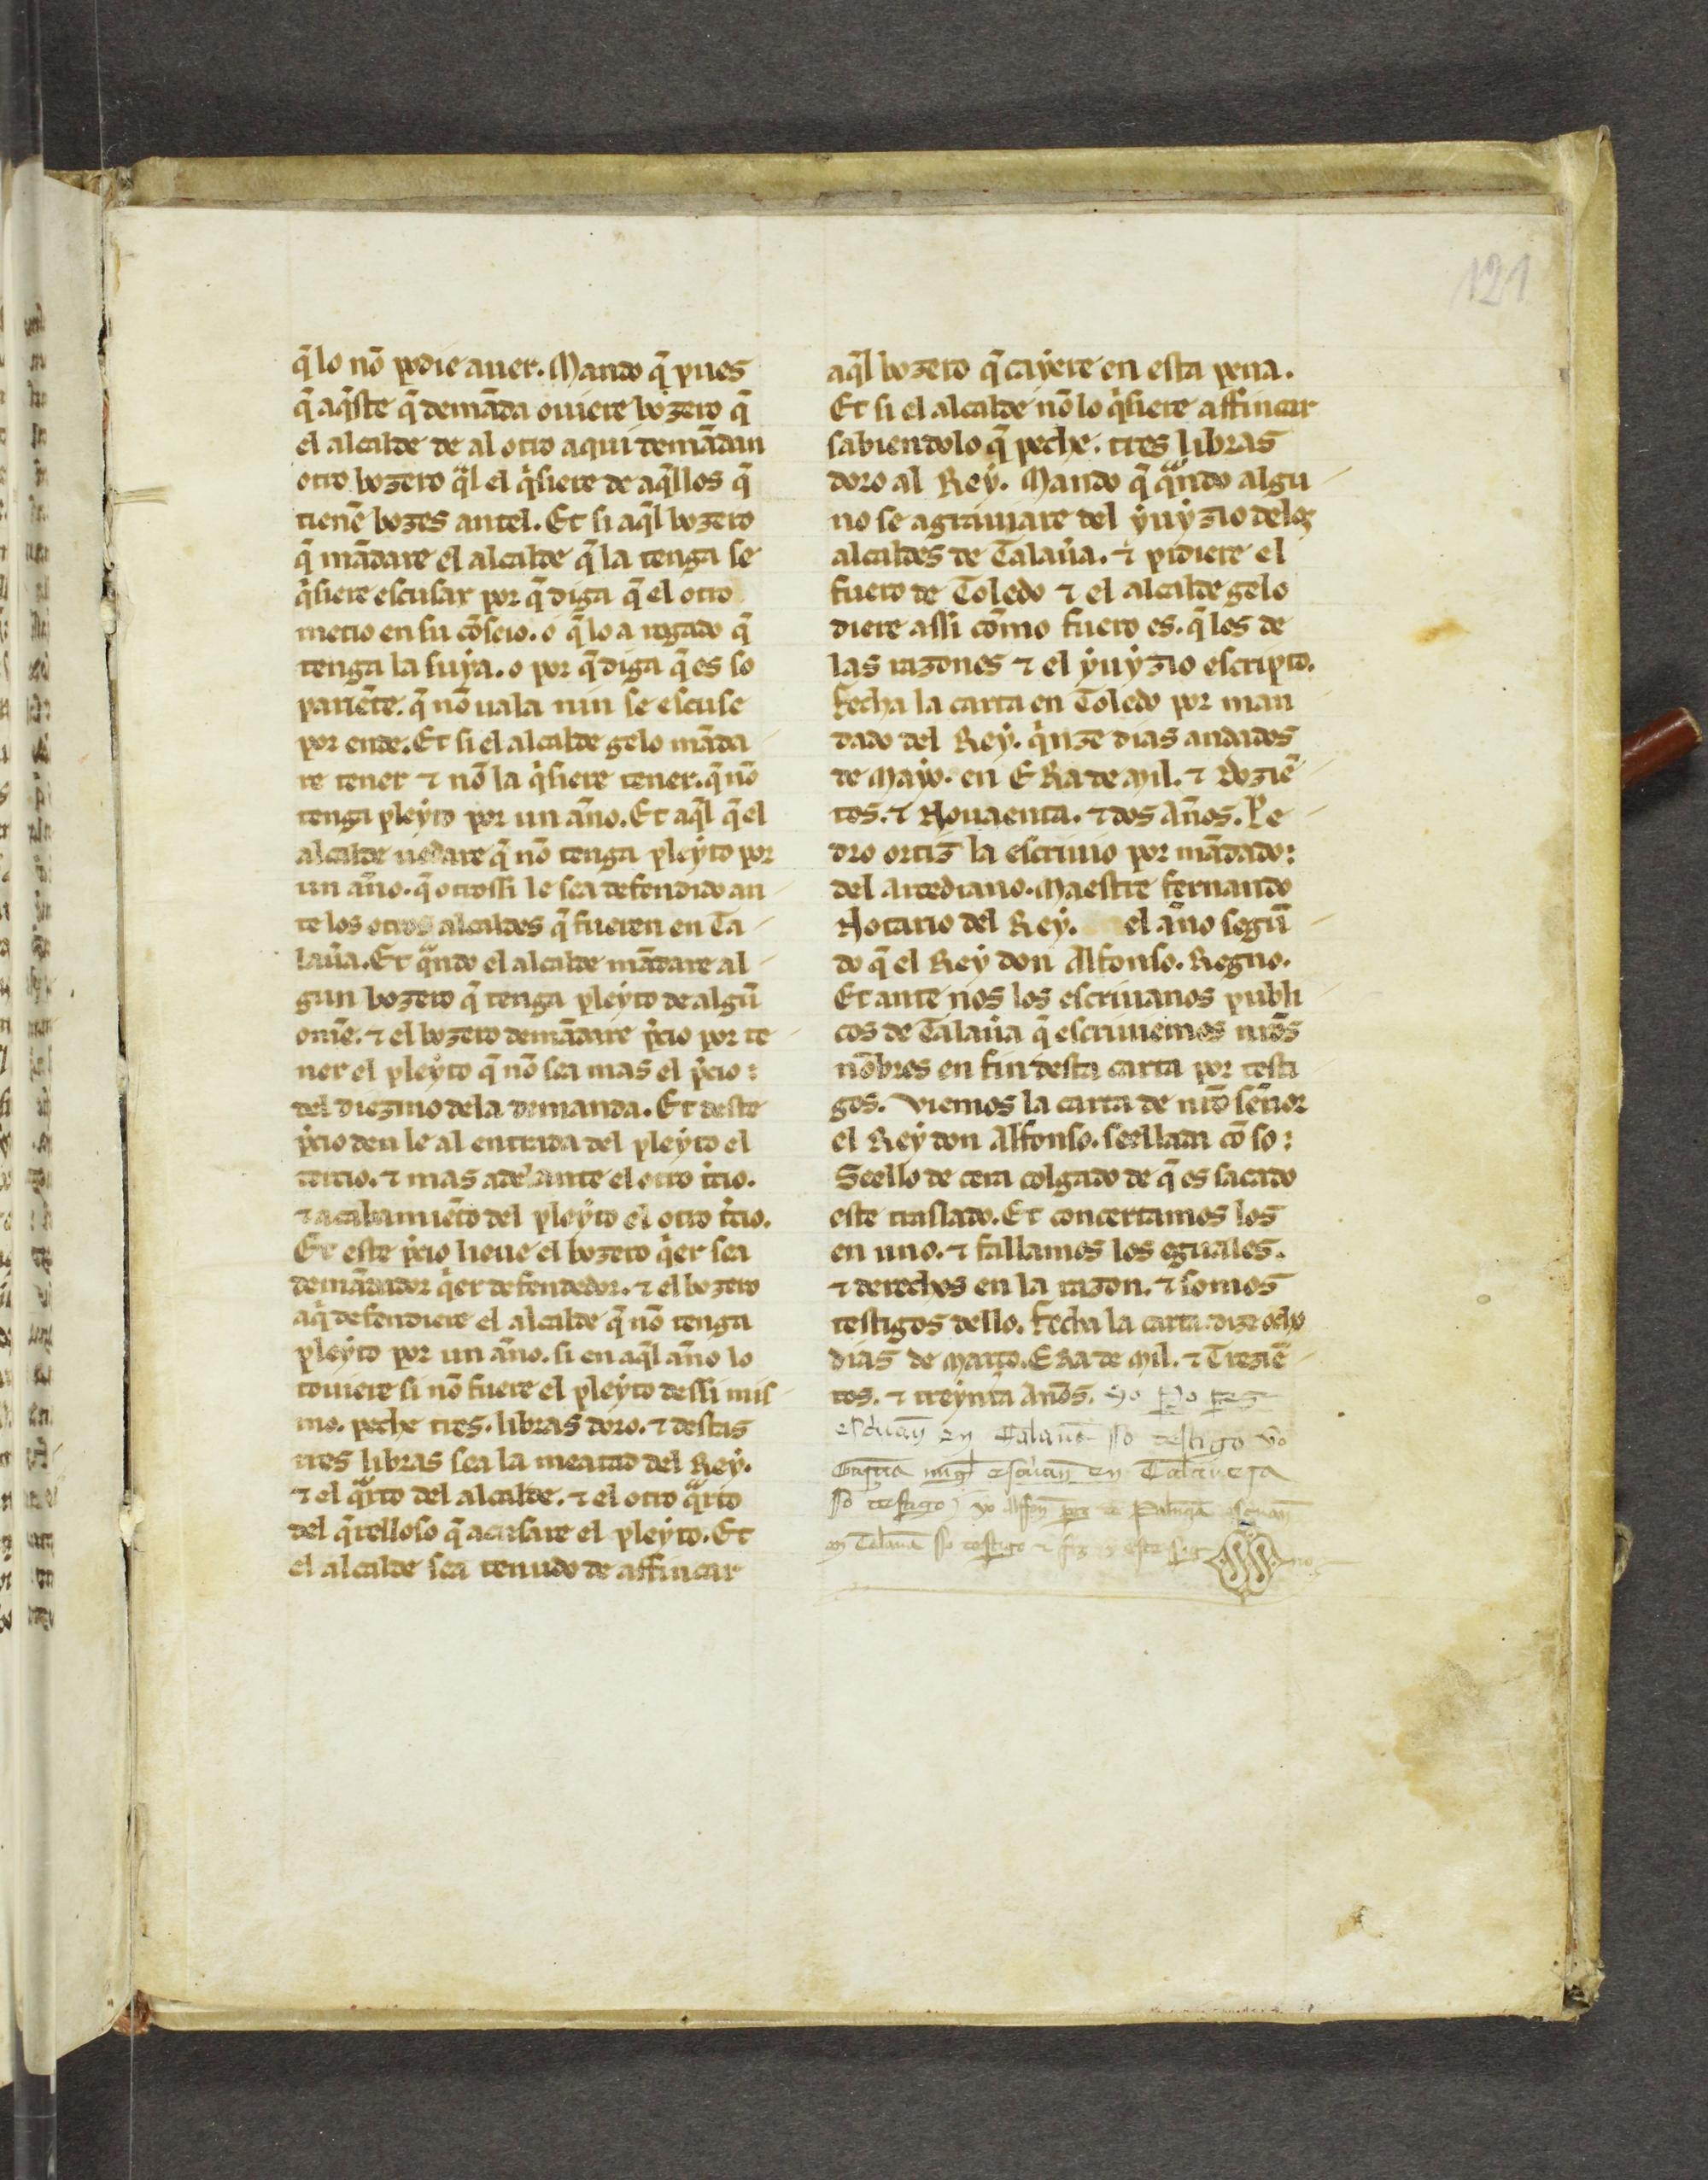 121
q̄ lo nō podie auer. Mando q̄ pues
q̄ aq̄ste q̄ demāda ouiere bozero q̄
el alcalde de al otro aqui demādan
otro bozero q̄l el q̇siere de aq̄llos q̄
tienē bozes antel. Et si aq̄l bozero
q̄ mādare el alcalde q̄ la tenga se
q̇siere escusar por q̄ diga q̄ el otro
metio en su cōseio. o q̄ lo a rogado q̄
tenga la suẏa. o por q̄ diga q̄ es so
pariēte. q̄ nō uala nin se escuse
por ende. Et si el alcalde gelo māda
re tener ⁊ nō la q̇siere tener. q̄ nō
tenga pleẏto por un āno. Et aq̄l q̄ el
alcalde uedare q̄ nō tenga pleẏto por
un āno. q̄ otrossi le sea defendido an
te los otros alcaldes q̄ fueren en Ta
lau̇a. Et qᵃndo el alcalde mādare al
gun bozero q̄ tenga pleẏto de algū
omē. ⁊ el bozero demādare ṗcio por te
ner el pleẏto q̄ nō sea mas el ṗcio:
del diezmo dela demanda. Et deste
ṗcio den le al entrada del pleẏto el
tercio. ⁊ mas adelante el otro ṫcio.
⁊ acabamiēto del pleẏto el otro ṫcio.
Et este ṗcio lieue el bozero q̇er sea
demādador q̇er defendedor. ⁊ el bozero
aq̇ defendiere el alcalde q̄ nō tenga
pleẏto por un āno. si en aq̄l āno lo
touiere si nō fuere el pleẏto dessi mis
mo. peche tres. libras doro. ⁊ destas
tres libras sea la meatad del Reẏ.
⁊ el qᵃrto del alcalde. ⁊ el otro qᵃrto
del q̇relloso q̄ acusare el pleẏto. Et
el alcalde sea tenudo de affincar
aq̄l bozero q̄ caẏere en esta pena.
Et si el alcalde nō lo q̇siere affincar
sabiendolo q̄ peche. tres libras
doro al Reẏ. Mando q̄ qᵃndo algu
no se agrauiare del ẏuẏzio delos
alcaldes de Talau̇a. ⁊ pidiere el
fuero de Toledo ⁊ el alcalde gelo
diere assi cōmo fuero es. q̄ les de
las razones ⁊ el ẏuẏzio escripto.
Fecha la carta en Toledo por man
dado del Reẏ. q̇nze dias andados
de Maẏo. en ERa de Mil. ⁊ Doziē
tos. ⁊ Nouaenta. ⁊ dos Anōs. Pe
dro ortiz la escriuio por mādado:
del arcediano. Maestre fernando
Notario del Reẏ. el āno segū
do q̄ el Reẏ don Alfonso. Regno.
Et ante nos los escriuanos publi
cos de Talau̇a q̄ escriuiemos nrōs
nōbres en fin desta carta por testi
gos. Viemos la carta de nrō sēnor
el Reẏ don Alfonso. seellada cō so:
Seello de cera colgado de q̄ es sacado
este traslado. Et concertamos los
en uno. ⁊ fallamos los eguales.
⁊ derechos en la razon. ⁊ somos
testigos dello. Fecha la carta. diez ocho
dias de Março. ERa de Mil. ⁊ Treziē
tos. ⁊ treẏnta Anōs. Yo Po
escuā en Talau̇a so testigo yo
Garcia escuan en Talauera
so testigo yo Alfon
en Talau̇a so testigo ⁊ fiz este sig no